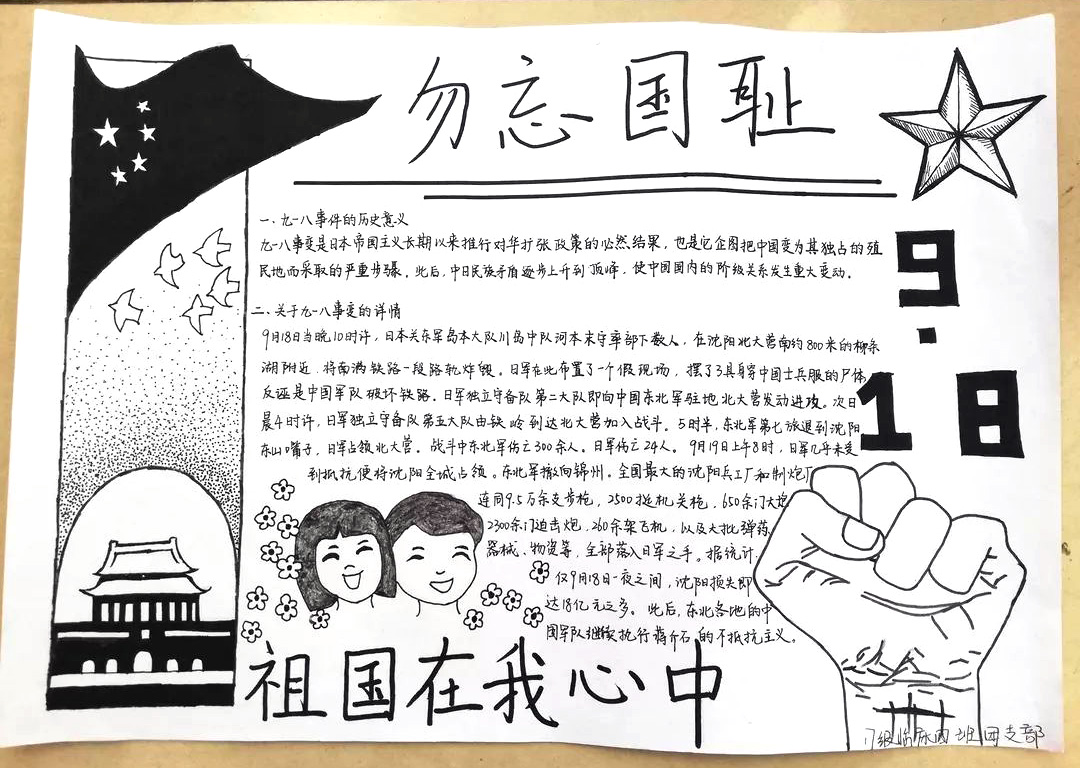 勿忘国耻
一、九一八事件的历史意义
九一八事变是日本帝国主义长期以来推行对华扩张政策的必然结果，也是它企图把中国变为其独占的殖
民地而采取的严重步骤。此后，中日民族矛盾逐步上升到顶峰，使中国国内的阶级关系发生重大变动。
9.
18
二、关于九一八事变的详情
9月18日当晚10时许，日本关东军岛本大队川岛中队河本末守率部下数人，在沈阳北大营南约800米的柳条
湖附近，将南满铁路一段路轨炸毁。日军在此布置了一个假现场，摆了3具身穿中国士兵服的尸体，
反诬是中国军队破坏铁路。日军独立守备队第二大队即向中国东北军驻地北大营发动进攻。次日
晨4时许，日军独立守备队第五大队由铁岭到达北大营加入战斗。5时半，东北军第七旅退到沈阳
东山嘴子，日军占领北大营。战斗中东北军伤亡300余人，日军伤亡24人。9月19日上午8时，日军几乎未受
到抵抗便将沈阳全城占领。东北军撤向锦州。全国最大的沈阳兵工厂和制炮厂
连同9.5万余支步枪，2500挺机关枪，650余门大炮
2300余门迫击炮，260余架飞机，以及大批弹药，
器械、物资等，全部落入日军之手。据统计，
仅9月18日一夜之间，沈阳损失即
达18亿元之多。此后，东北各地的中
国军队继续执行蒋介石的不抵抗主义。
祖国在我心中
17级临床四班团支部